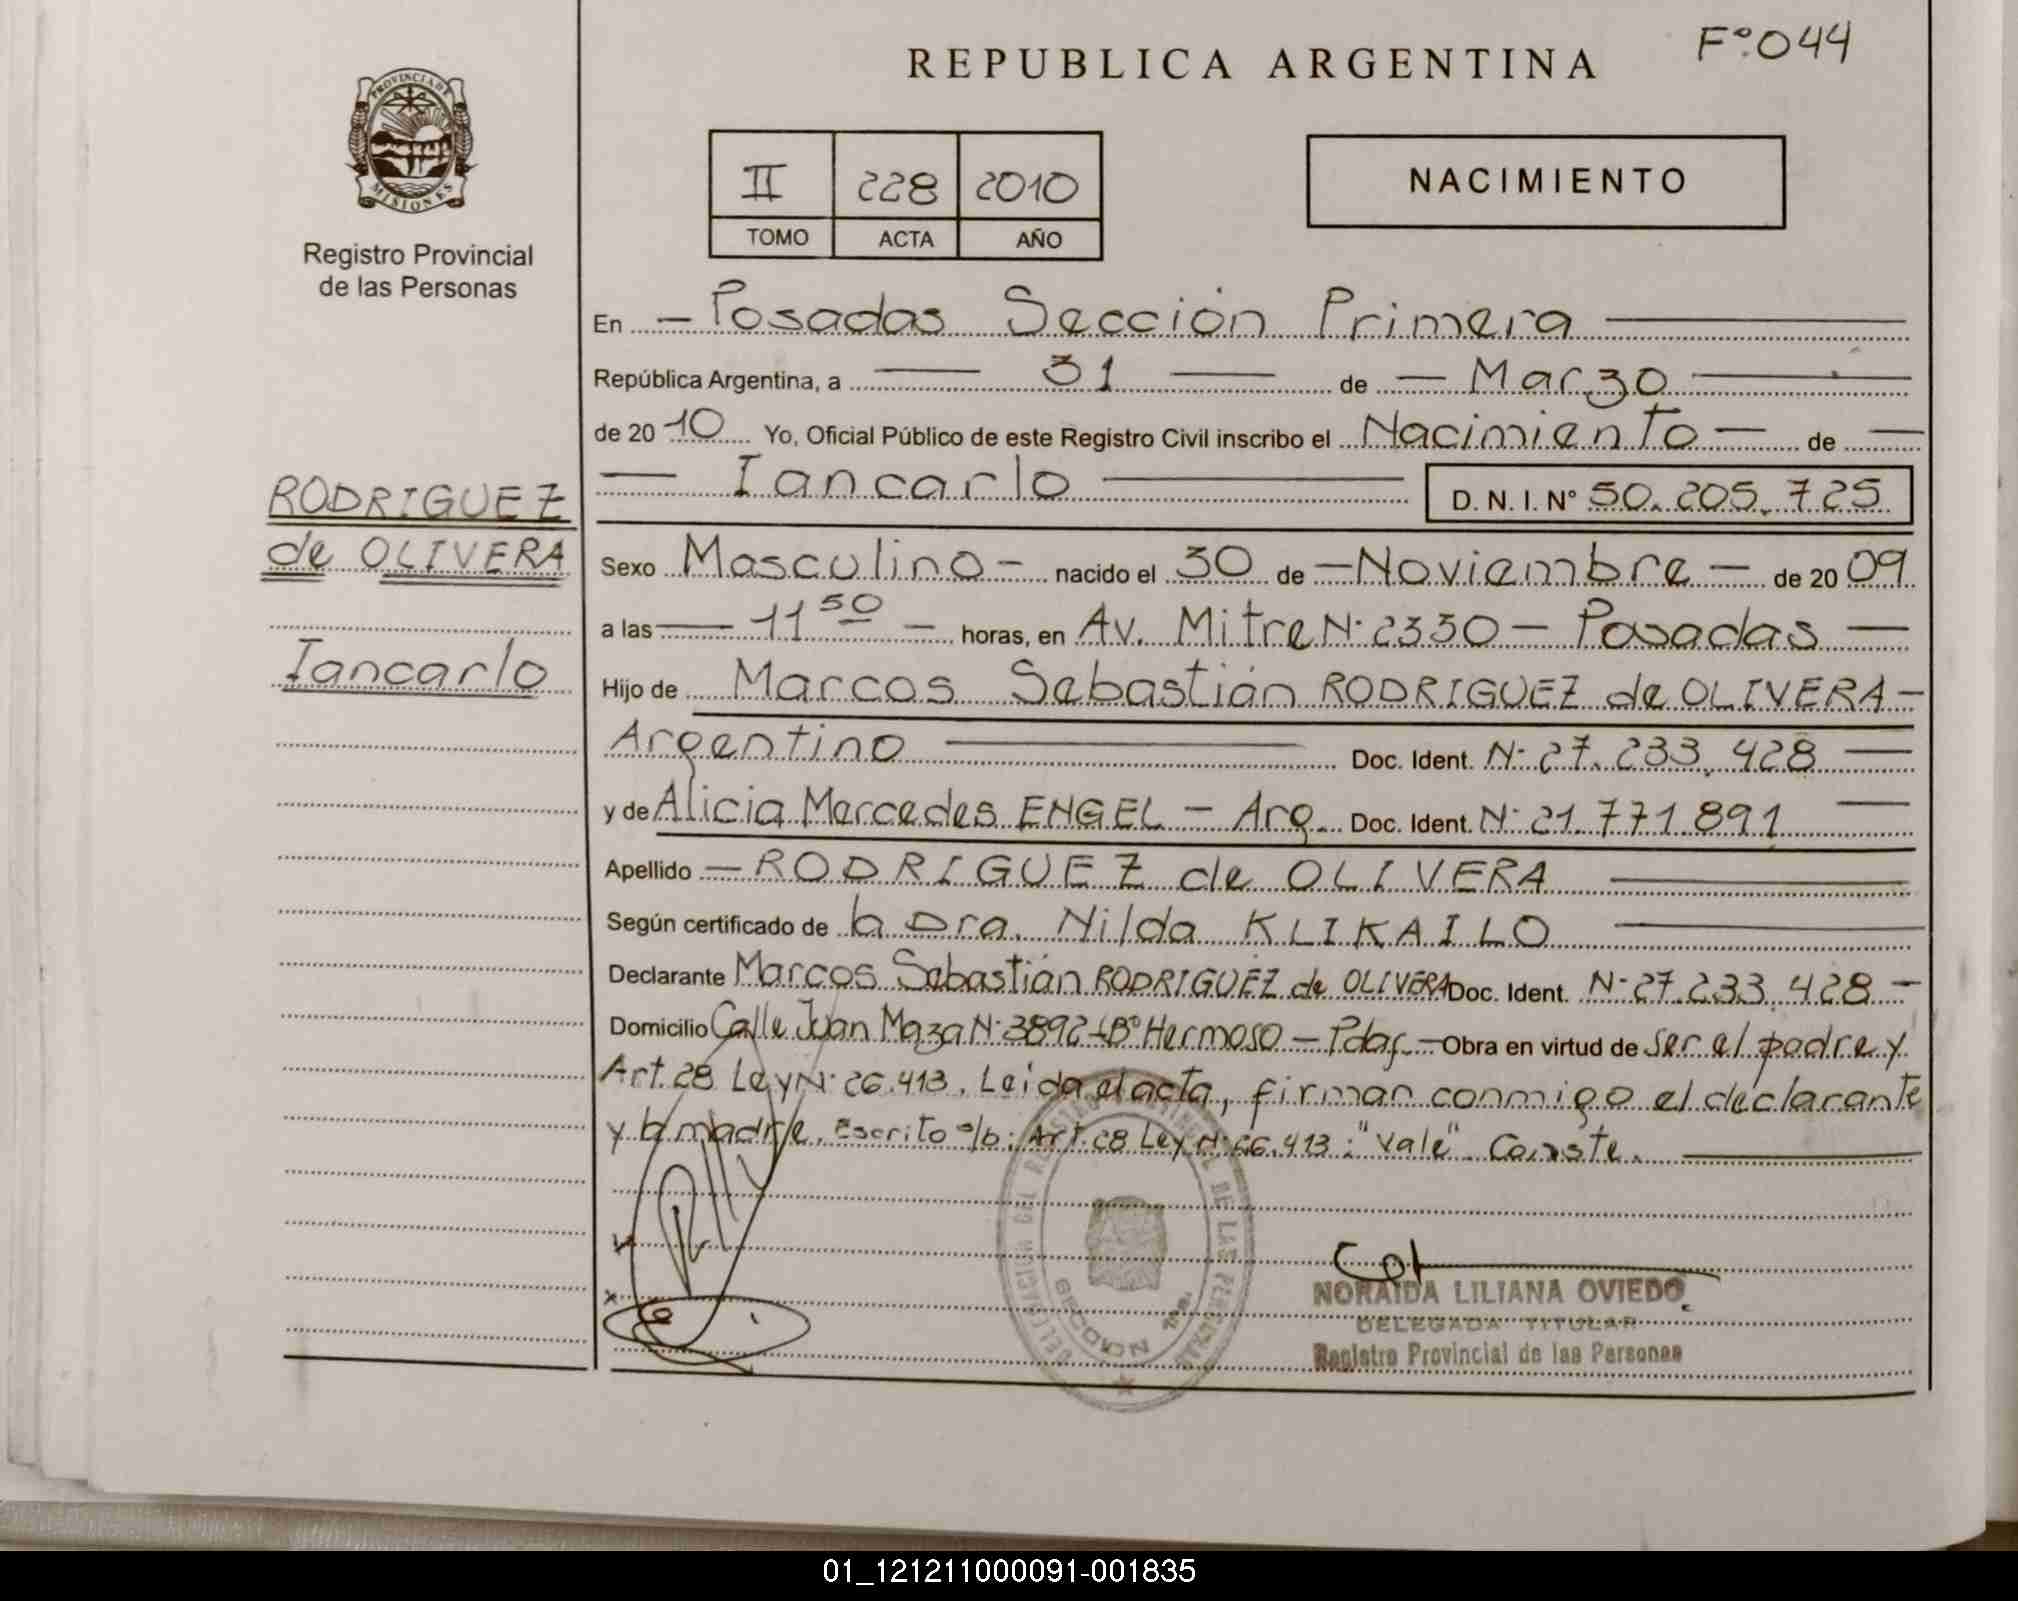 F° 044
REPUBLICA ARGENTINA
PROVINCIA DE MISIONES
Registro Provincial
de las Personas
II 228 2010
TOMO ACTA AÑO
NACIMIENTO
En - Posadas Sección Primera
República Argentina, a 31 de - Marzo
de 20 10 Yo, Oficial Público de este Registro Civil inscribo el Nacimiento - de -
Iancarlo D. N. I. N° 50.205.725
RODRIGUEZ
de OLIVERA
Iancarlo
Sexo Masculino - nacido el 30 de - Noviembre - de 20 09
a las - 11 50 - horas, en Av. Mitre N° 2330 - Posadas -
Hijo de Marcos Sebastián RODRIGUEZ de OLIVERA -
Argentino Doc. Ident. N° 27.233.428
y de Alicia Mercedes ENGEL - Arg. Doc. Ident. N° 21.771.891
Apellido - RODRIGUEZ de OLIVERA
Según certificado de la Dra. Nilda KLIKAILO
Declarante Marcos Sebastián RODRIGUEZ de OLIVERA Doc. Ident. N° 27.233.428 -
Domicilio Calle Juan Maza N° 3892 - B° Hermoso - Pdas. - Obra en virtud de ser el padre y
Art. 28 Ley N° 26.413. Leida el acta, firman conmigo el declarante
y la madre. Escrito s/b: Art. 28 Ley N° 26.413: "Vale". Conste.
DELEGACION DEL REGISTRO PROVINCIAL DE LAS PERSONAS
SECCION 1ra.
NORAIDA LILIANA OVIEDO
DELEGADA TITULAR
Registro Provincial de las Personas
01_121211000091-001835